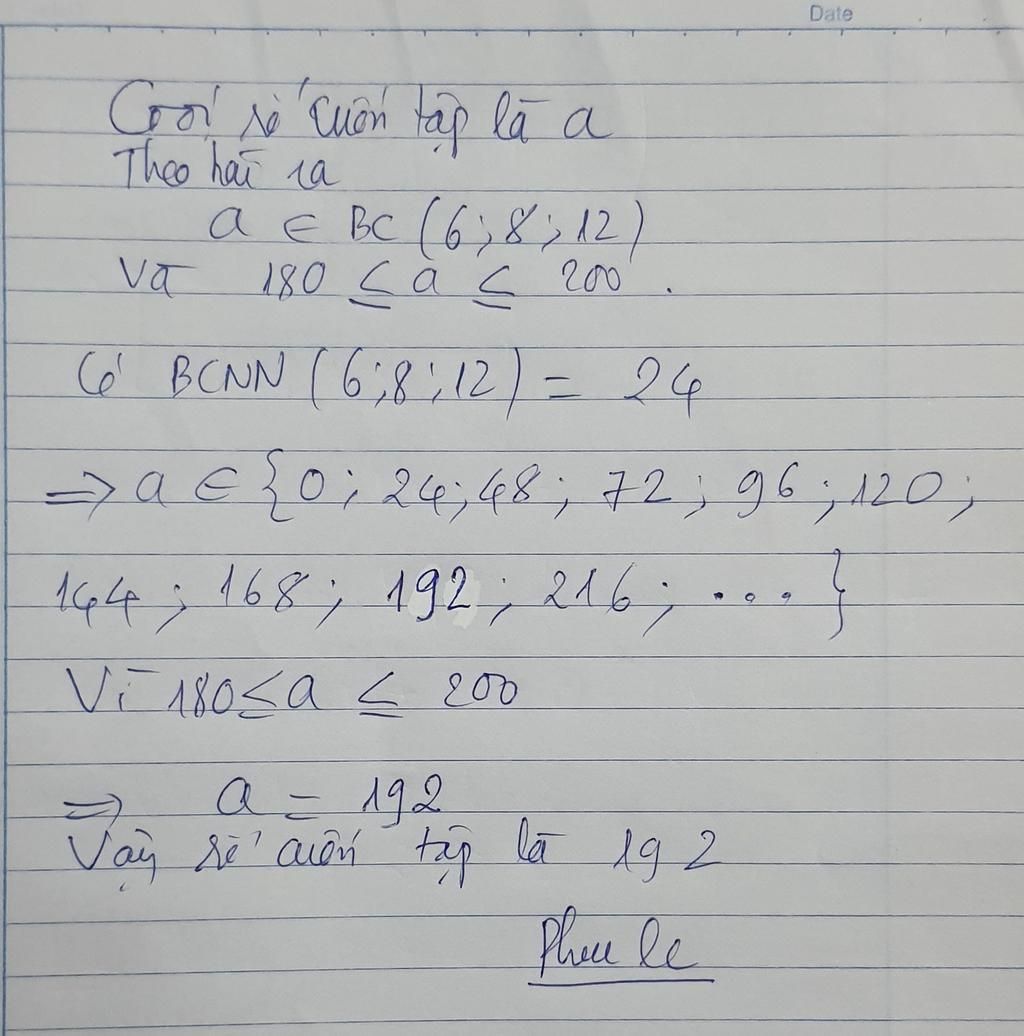 Date
Gọi số cuốn tập là a
Theo bài ra
a ∈ BC (6;8;12)
Và 180 ≤ a ≤ 200.
Có BCNN (6;8;12) = 24
=> a ∈ {0; 24; 48; 72; 96; 120;
144; 168; 192; 216; ...}
Vì 180 ≤ a ≤ 200
=> a = 192
Vậy số cuốn tập là 192
Phu le